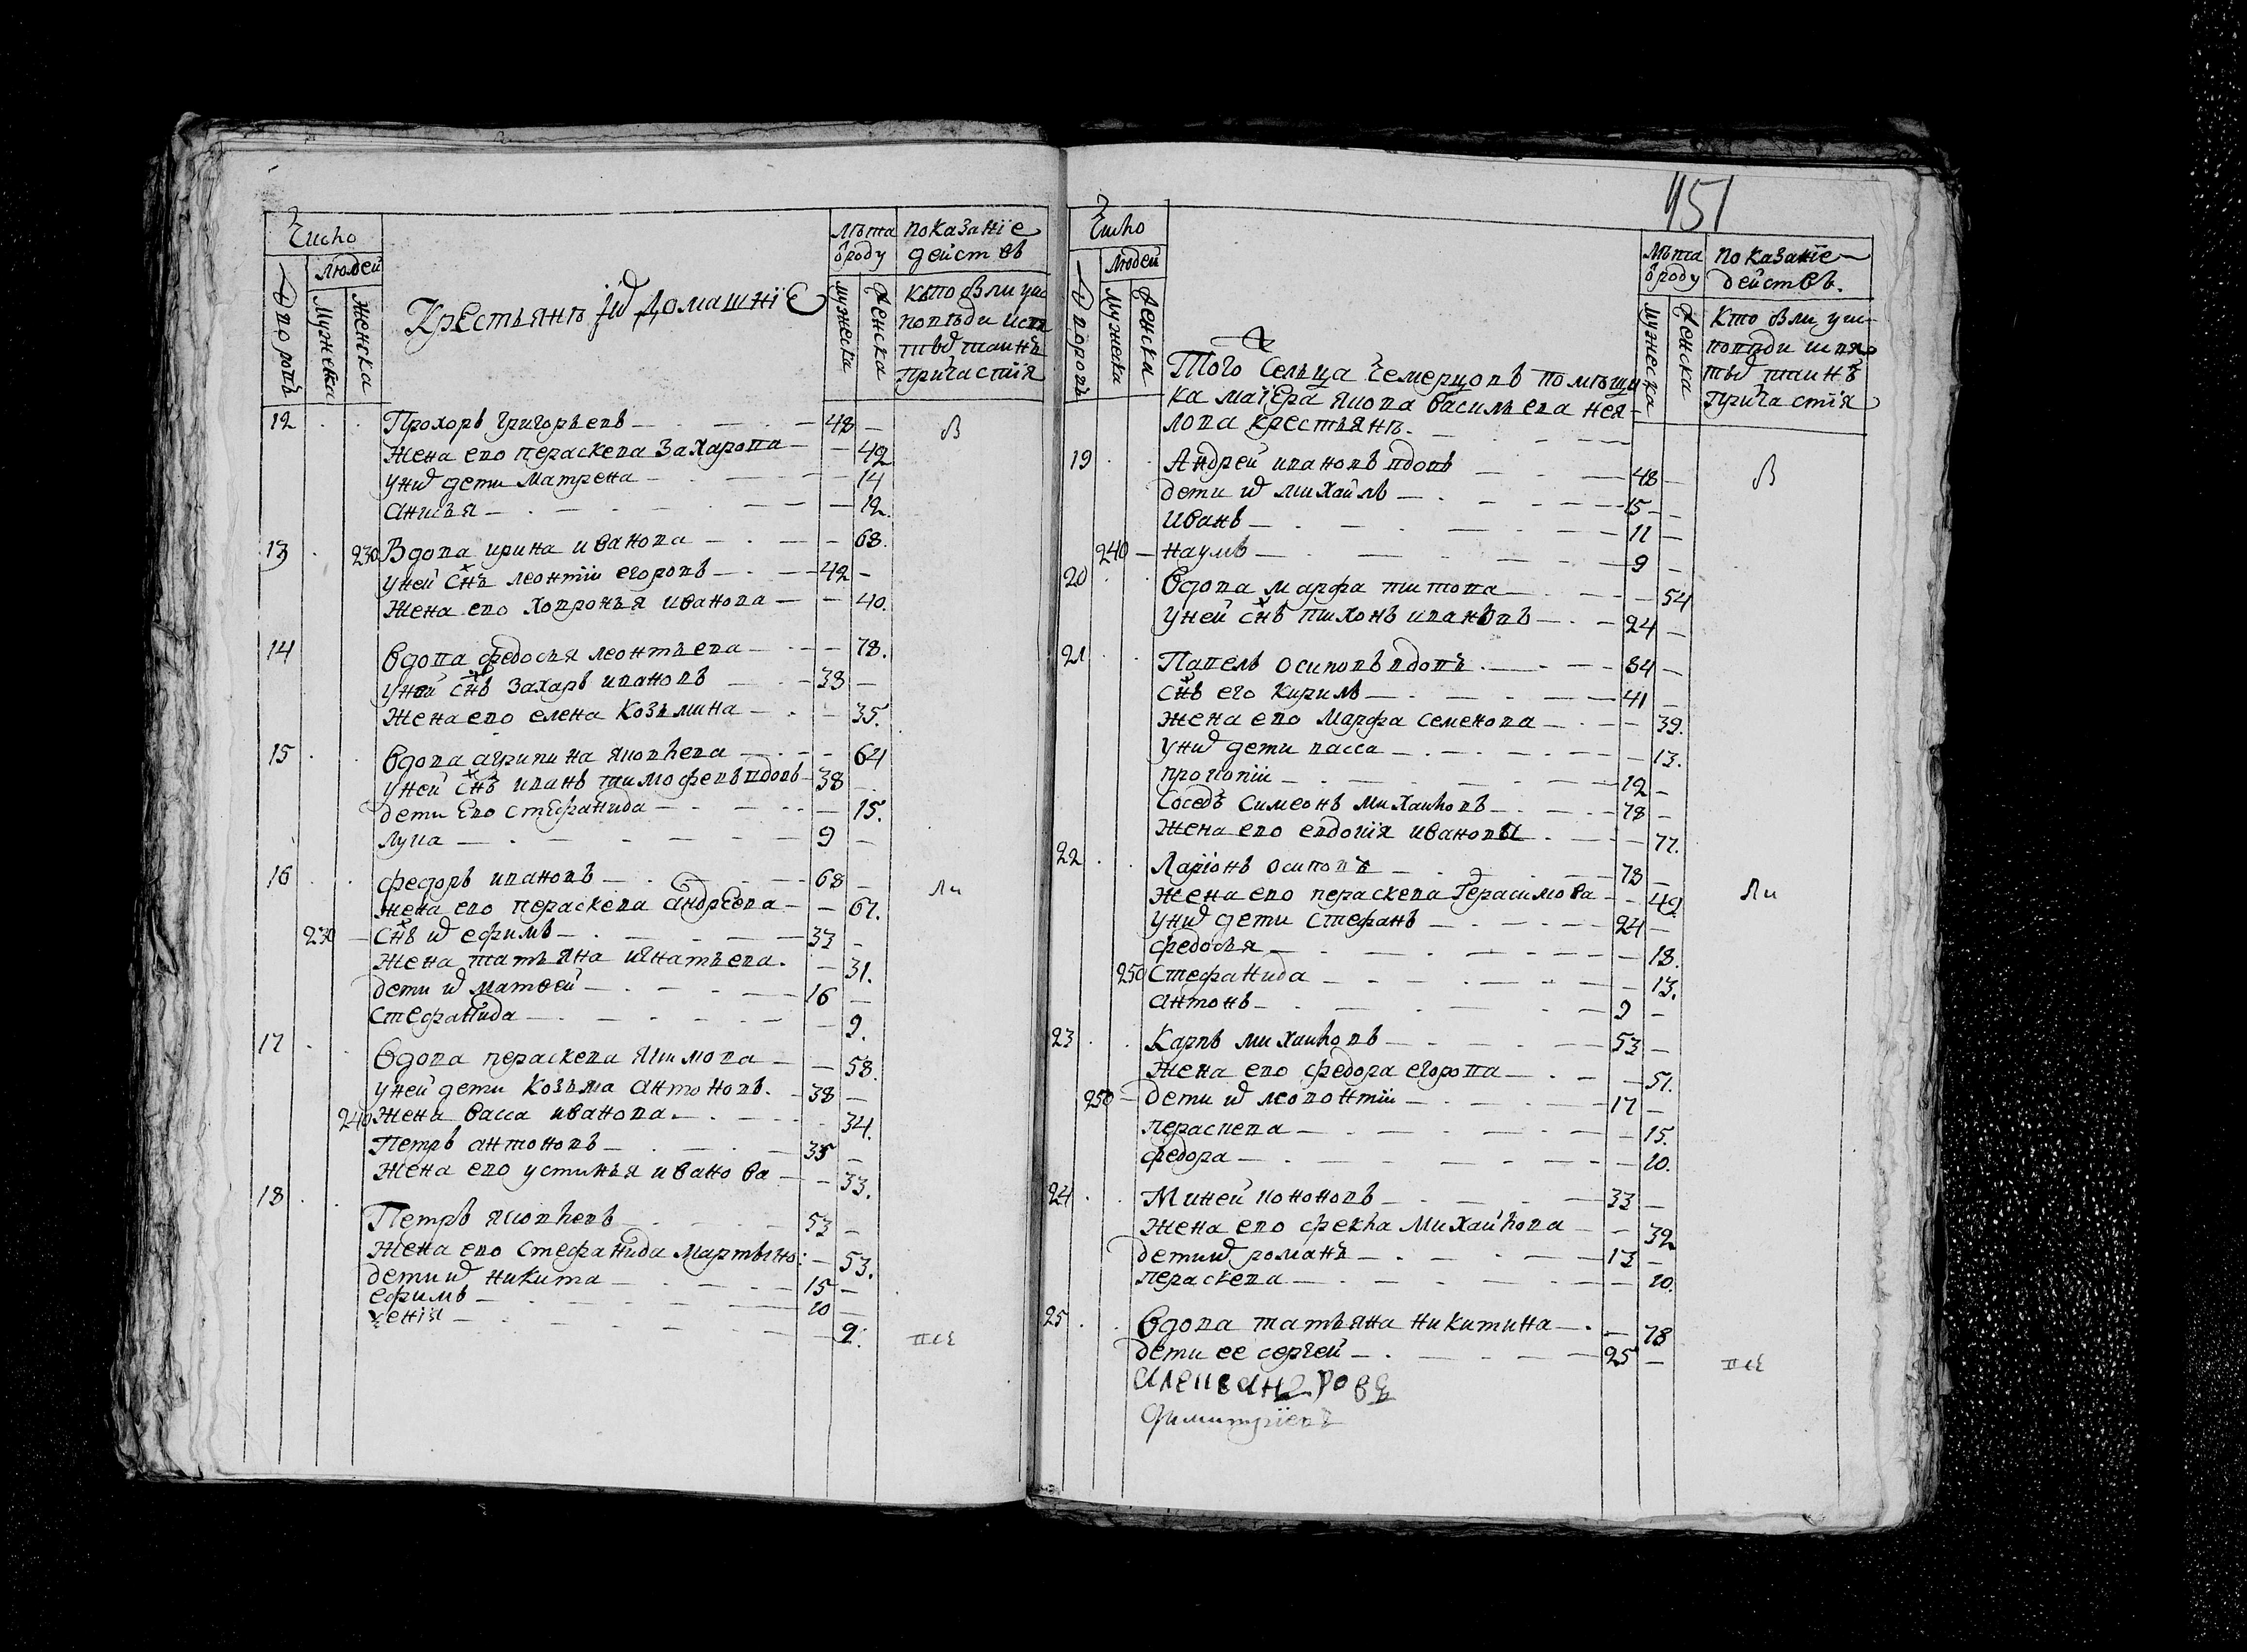 Число
Людей
Дворовъ
Мужеска
Женска
Крестьянъ ихъ домашніе
Лѣта
ѿ роду
мужеска
Женска
показаніе
действъ
Кто были у ис
поведи и св
тыхъ таинъ
Причастія
12 Прохоръ Григорьевъ 48
жена ево пераскева Захарова 42
у нихъ дети Матрена 14
анисья 12.
13 230 Вдова ирина иванова 68.
у ней снъ леонтіи егоровъ 42
Жена ево ховронья иванова 40.
14 вдова федосья леонтьева 78.
у ней снъ Захаръ ивановъ 38
Жена ево елена Козьмина 35.
15 вдова агрипина яковлева 64
у ней снъ иванъ тимофеевъ вдовъ 38
дети Ево Стефанида 15.
лука 9
16 федоръ ивановъ 68
жена ево пераскева андреева 67.
230 снъ их ефимъ 33
Жена татьяна игнатьева. 31.
дети их матвей 16
Стефанида 9.
17 вдова пераскева якимова 58.
у ней дети Козьма антоновъ. 38
240 Жена васса иванова. 34.
Петръ антоновъ 35
Жена ево устинья иванова 33.
18 Петръ яковлевъ 53
Жена ево Стефанида мартыно: 53.
дети их никита 15
ефимъ 10
ѯенія 9.
В
Ли
псѣ
151
Число
Людей
Дворовъ
Мужеска
Женска
Лѣта
ѿ роду
мужеска
Женска
показаніе
действъ.
Кто были у ис
поведи и свя
тыхъ таинъ
прича стія
Того Сельца Чемерцовъ помѣщи
ка маіера якова васильева нея
лова крестьянъ.
19 Андрей ивановъ вдовъ 48
дети их михаилъ 15
иванъ 11
240 наумъ 9
20 вдова марфа титова 54
у ней снъ тихонъ ивановъ 24
21 Павелъ осиповъ вдовъ 84
снъ его кирилъ 41
жена ево марфа семенова 39.
у нихъ дети васса 13.
прокопіи 12
Соседъ Симеонъ михаиловъ 78
Жена ево евдокія иванова 77.
22 Ларіонъ осиповъ 78
жена ево пераскева Герасимова 49.
у нихъ дети Стефанъ 24
федосья 18.
250 Стефанида 13.
антонъ 9
23 Карпъ михаиловъ 53
Жена ево федора егорова 51.
250 дети их леонтіи 17
пераскева 15.
федора 10.
24 Миней кононовъ 33
Жена ево фекла михаилова 32
дети их романъ 13
пераскева 10.
25 вдова татьяна никитина 78
дети ее сергей 25
В
Ли
псѣ
алеѯандровъ
Димитріевъ